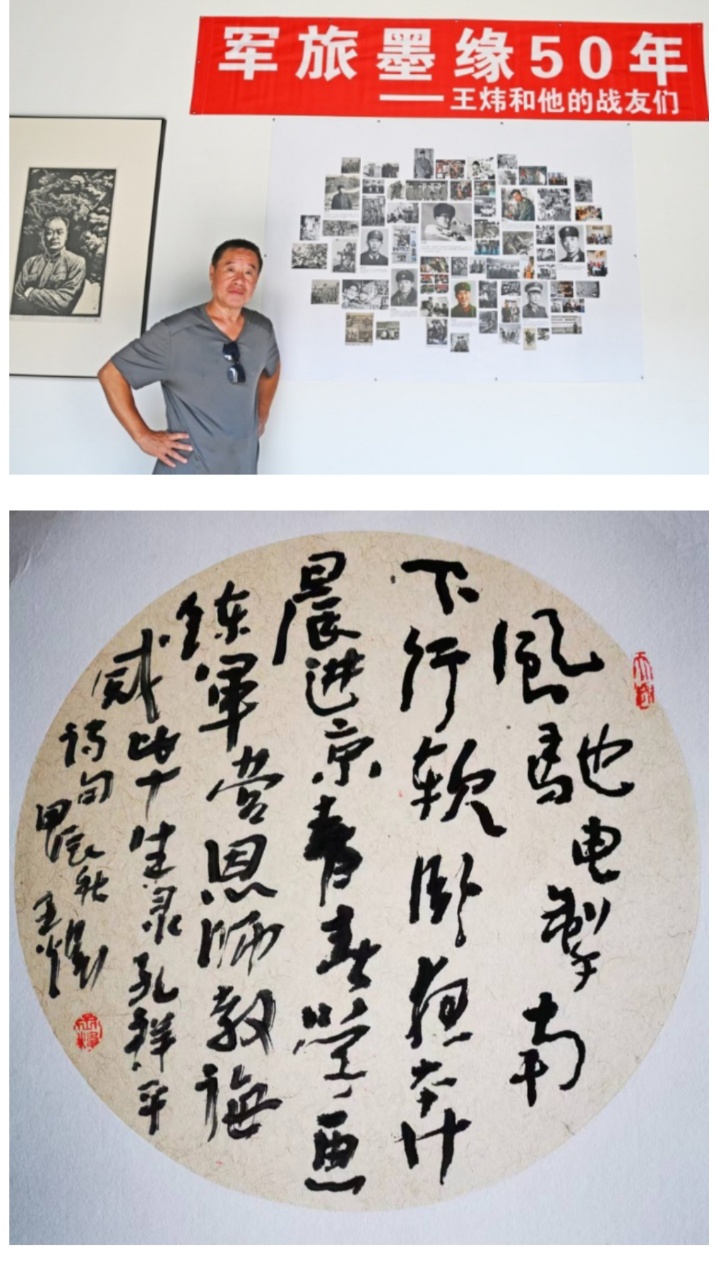 军旅墨缘50年
——王炜和他的战友们
風馳电掣南
下行软卧奔
晨进京青春学画
錬軍营恩师教诲
感毕生录孔祥平
诗句甲辰秋
王炜